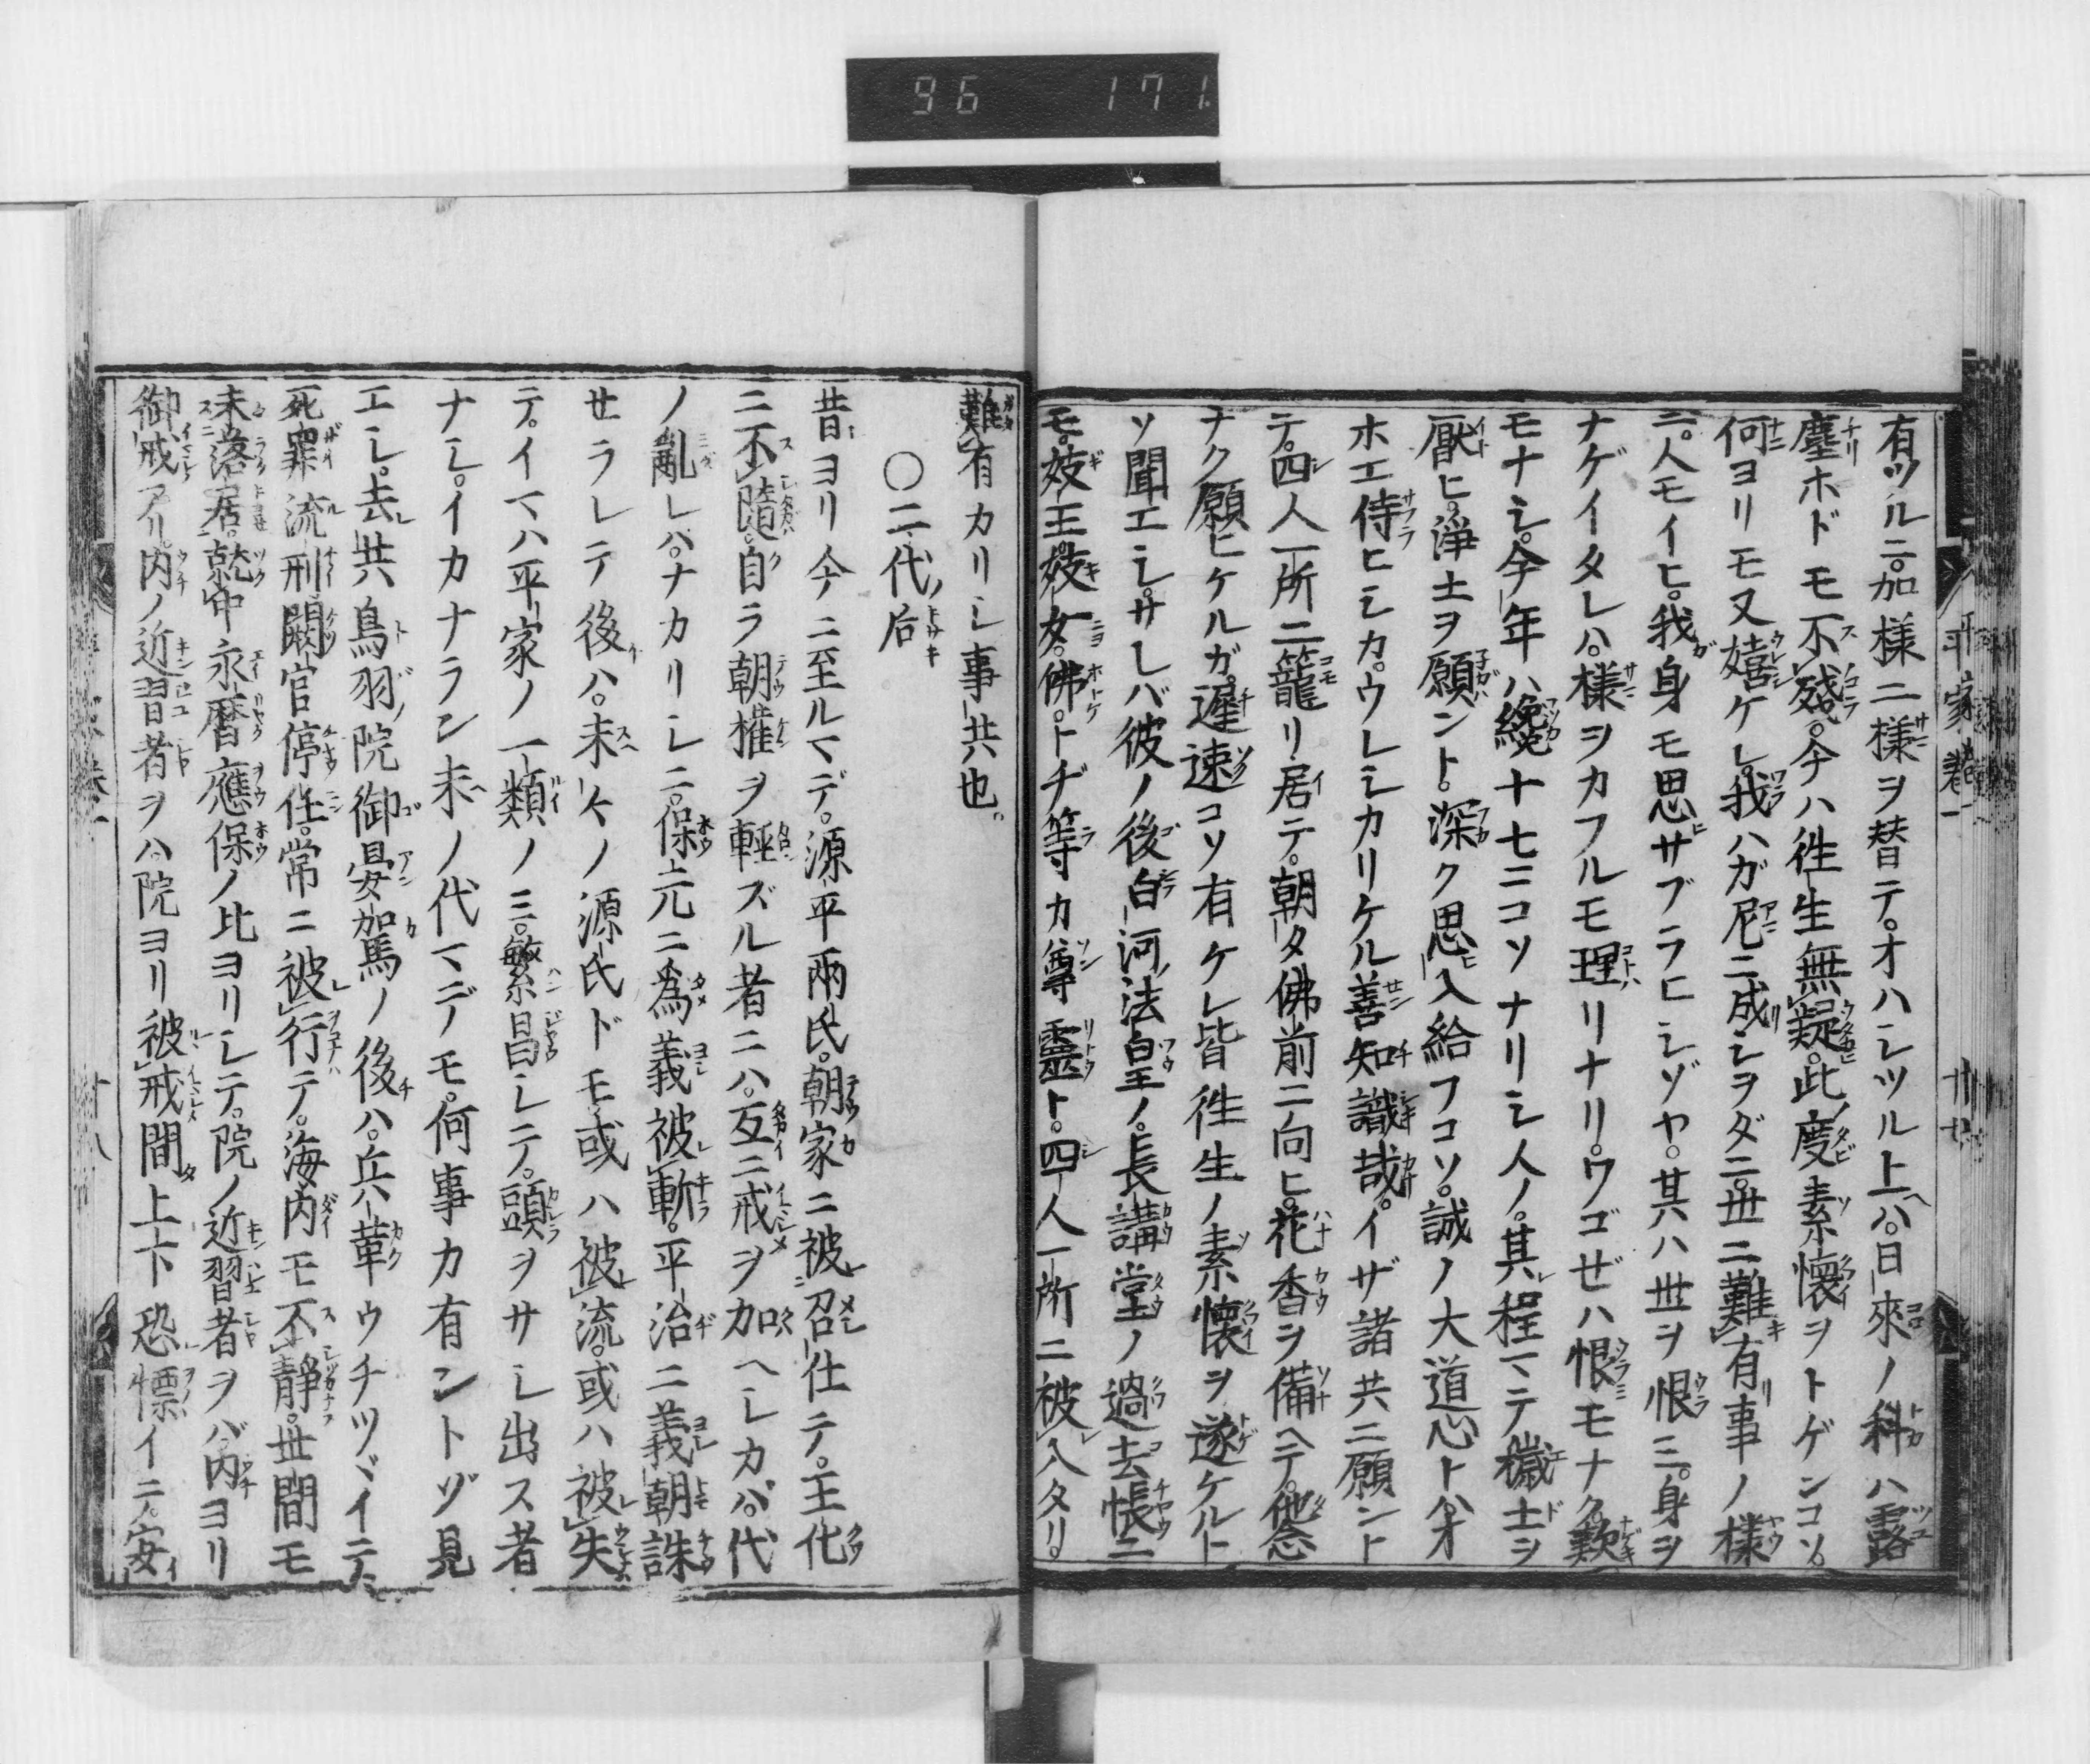 96 171
平家巻一
有ツルニ。加様ニ様ヲ替テ。オハシツル上ハ。日来ノ科ハ露
塵ホドモ不残。今ハ往生無疑。此度素懐ヲトゲンコソ。
何ヨリモ又嬉ケレ。我ハガ尼ニ成シヲダニ。世ニ難有事ノ様
ニ。人モイヒ。我身モ思サブラヒシゾヤ。其ハ世ヲ恨ミ。身ヲ
ナゲイタレハ。様ヲカフルモ理リナリ。ワゴゼハ恨モナク。歎
モナシ。今年ハ纔十七ニコソナリシ人ノ。其程マテ穢土ヲ
厭ヒ。浄土ヲ願ント。深ク思入給フコソ。誠ノ大道心トハオ
ホエ侍ヒシカ。ウレシカリケル善知識哉。イザ諸共ニ願ント
テ。四人一所ニ籠リ居テ。朝夕佛前ニ向ヒ。花香ヲ備ヘテ。他念
ナク願ヒケルガ。遲速コソ有ケレ皆往生ノ素懐ヲ遂ケルト
ソ聞エシ。サレバ彼ノ後白河法皇ノ。長講堂ノ過去帳ニ
モ。妓王。妓女。佛。トヂ等カ尊靈ト。四人一所ニ被入タリ。
難有カリシ事共也。
〇二代后
昔ヨリ今ニ至ルマデ。源平兩氏。朝家ニ被召仕テ。王化
ニ不隨。自ラ朝権ヲ輕ズル者ニハ。互ニ戒ヲ加ヘシカバ。代
ノ亂レハ。ナカリシニ。保元ニ爲義被斬。平治ニ義朝誅
セラレテ後ハ。末々ノ源氏ドモ或ハ被流。或ハ被失
テ。イマハ平家ノ一類ノミ。繁昌シテ。頭ヲサシ出ス者
ナシ。イカナラン末ノ代マデモ。何事カ有ントゾ見
エシ。去共鳥羽院御晏駕ノ後ハ。兵革ウチツヾイテ。
死罪流刑闕官停任。常ニ被行テ。海内モ不靜。世間モ
未落居。就中永暦應保ノ比ヨリシテ。院ノ近習者ヲバ。内ヨリ
御戒アリ。内ノ近習者ヲハ。院ヨリ被戒間上下恐慄イテ。安